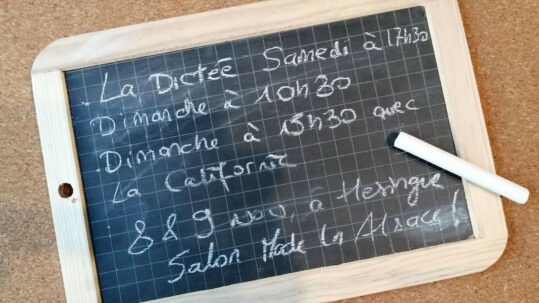 . La Dictée Samedi à 17h30
Dimanche à 10h30
. Dimanche à 15h30 avec
La Californie
8 & 9 nov. à Hésingue
Salon Made In Alsace!